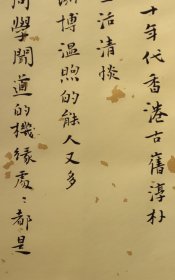 十年代香港古舊淳朴
生活清淡
淵博溫煦的能人又多
問學聞道的機緣處處都是